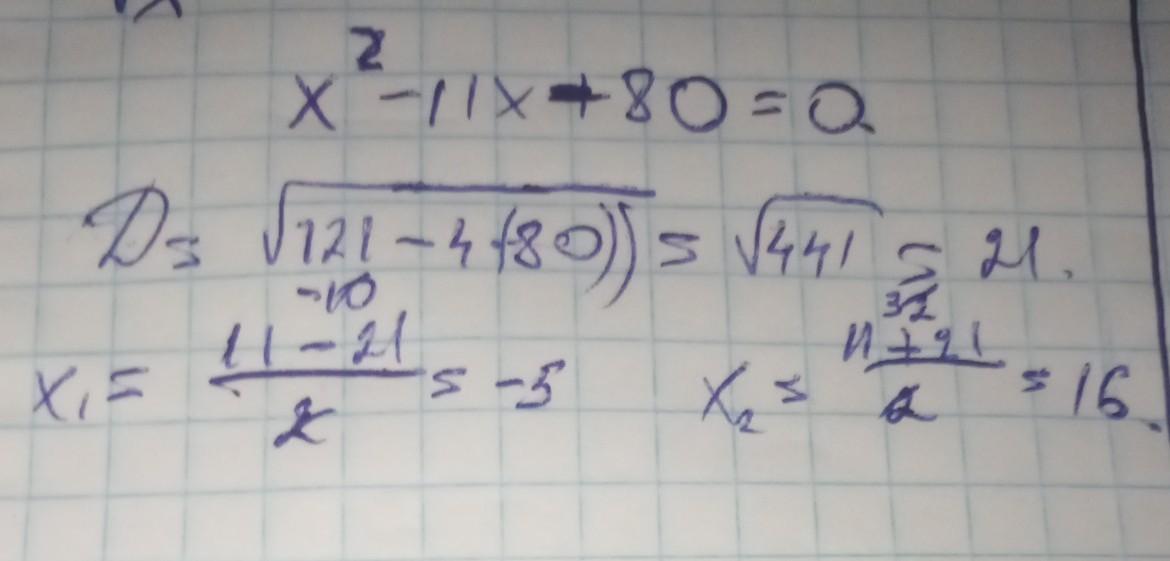 x² - 11x + 80 = 0
D = √121 - 4(80)) = √441 = 21.
-10
32
x₁ = 11 - 21 / 2 = -5 x₂ = 11 + 21 / 2 = 16.